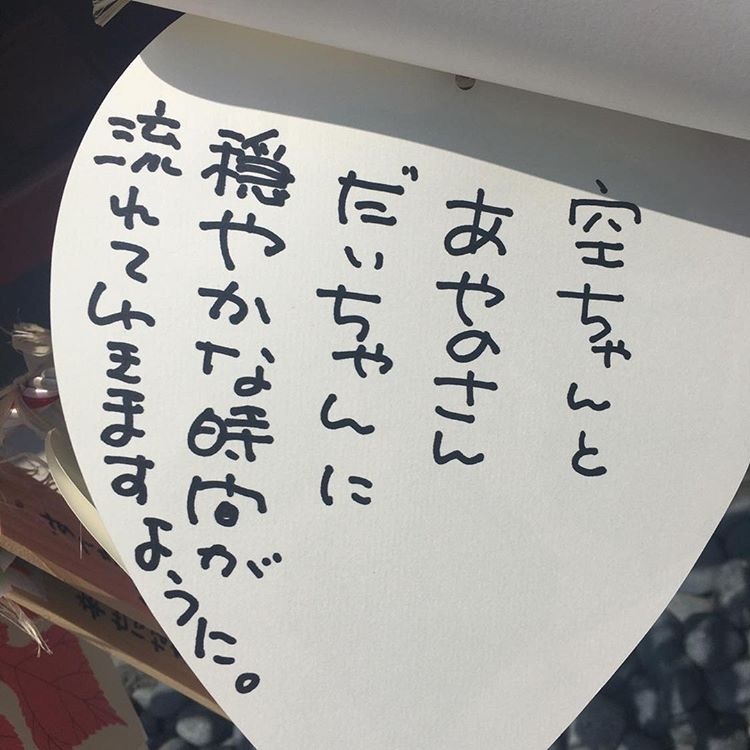 空ちゃんと
あやのさん
だいちゃんに
穏やかな時間が
流れてゆきますように。